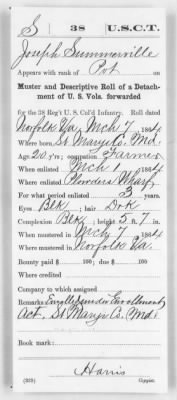 S 38 U.S.C.T.
Joseph Summerville
Appears with rank of Pvt on
Muster and Descriptive Roll of a Detach-
ment of U. S. Vols. forwarded
for the 38 Reg't U. S. Col'd Infantry. Roll dated
Norfolk Va, Mch 7, 1864
Where born St Marys Co, Md.
Age 20 y'rs; occupation Farmer
When enlisted Mch 1, 1864
Where enlisted Wharf
For what period enlisted 3 years.
Eyes Blk; hair Drk
Complexion Blk; height 5 ft. 7 in.
When mustered in Mch 7, 1864
Where mustered in Norfolk Va.
Bounty paid $ 100; due $ 100
Where credited
Company to which assigned
Remarks Enrolled under Enrollment
Act, St Marys Co. Md.
Book mark:
Harris
(339) Copyist.